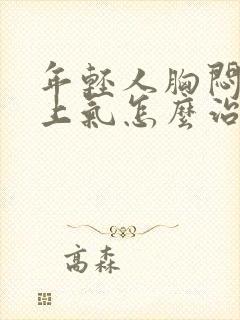 年輕人胸悶
上氣怎麼治
高森